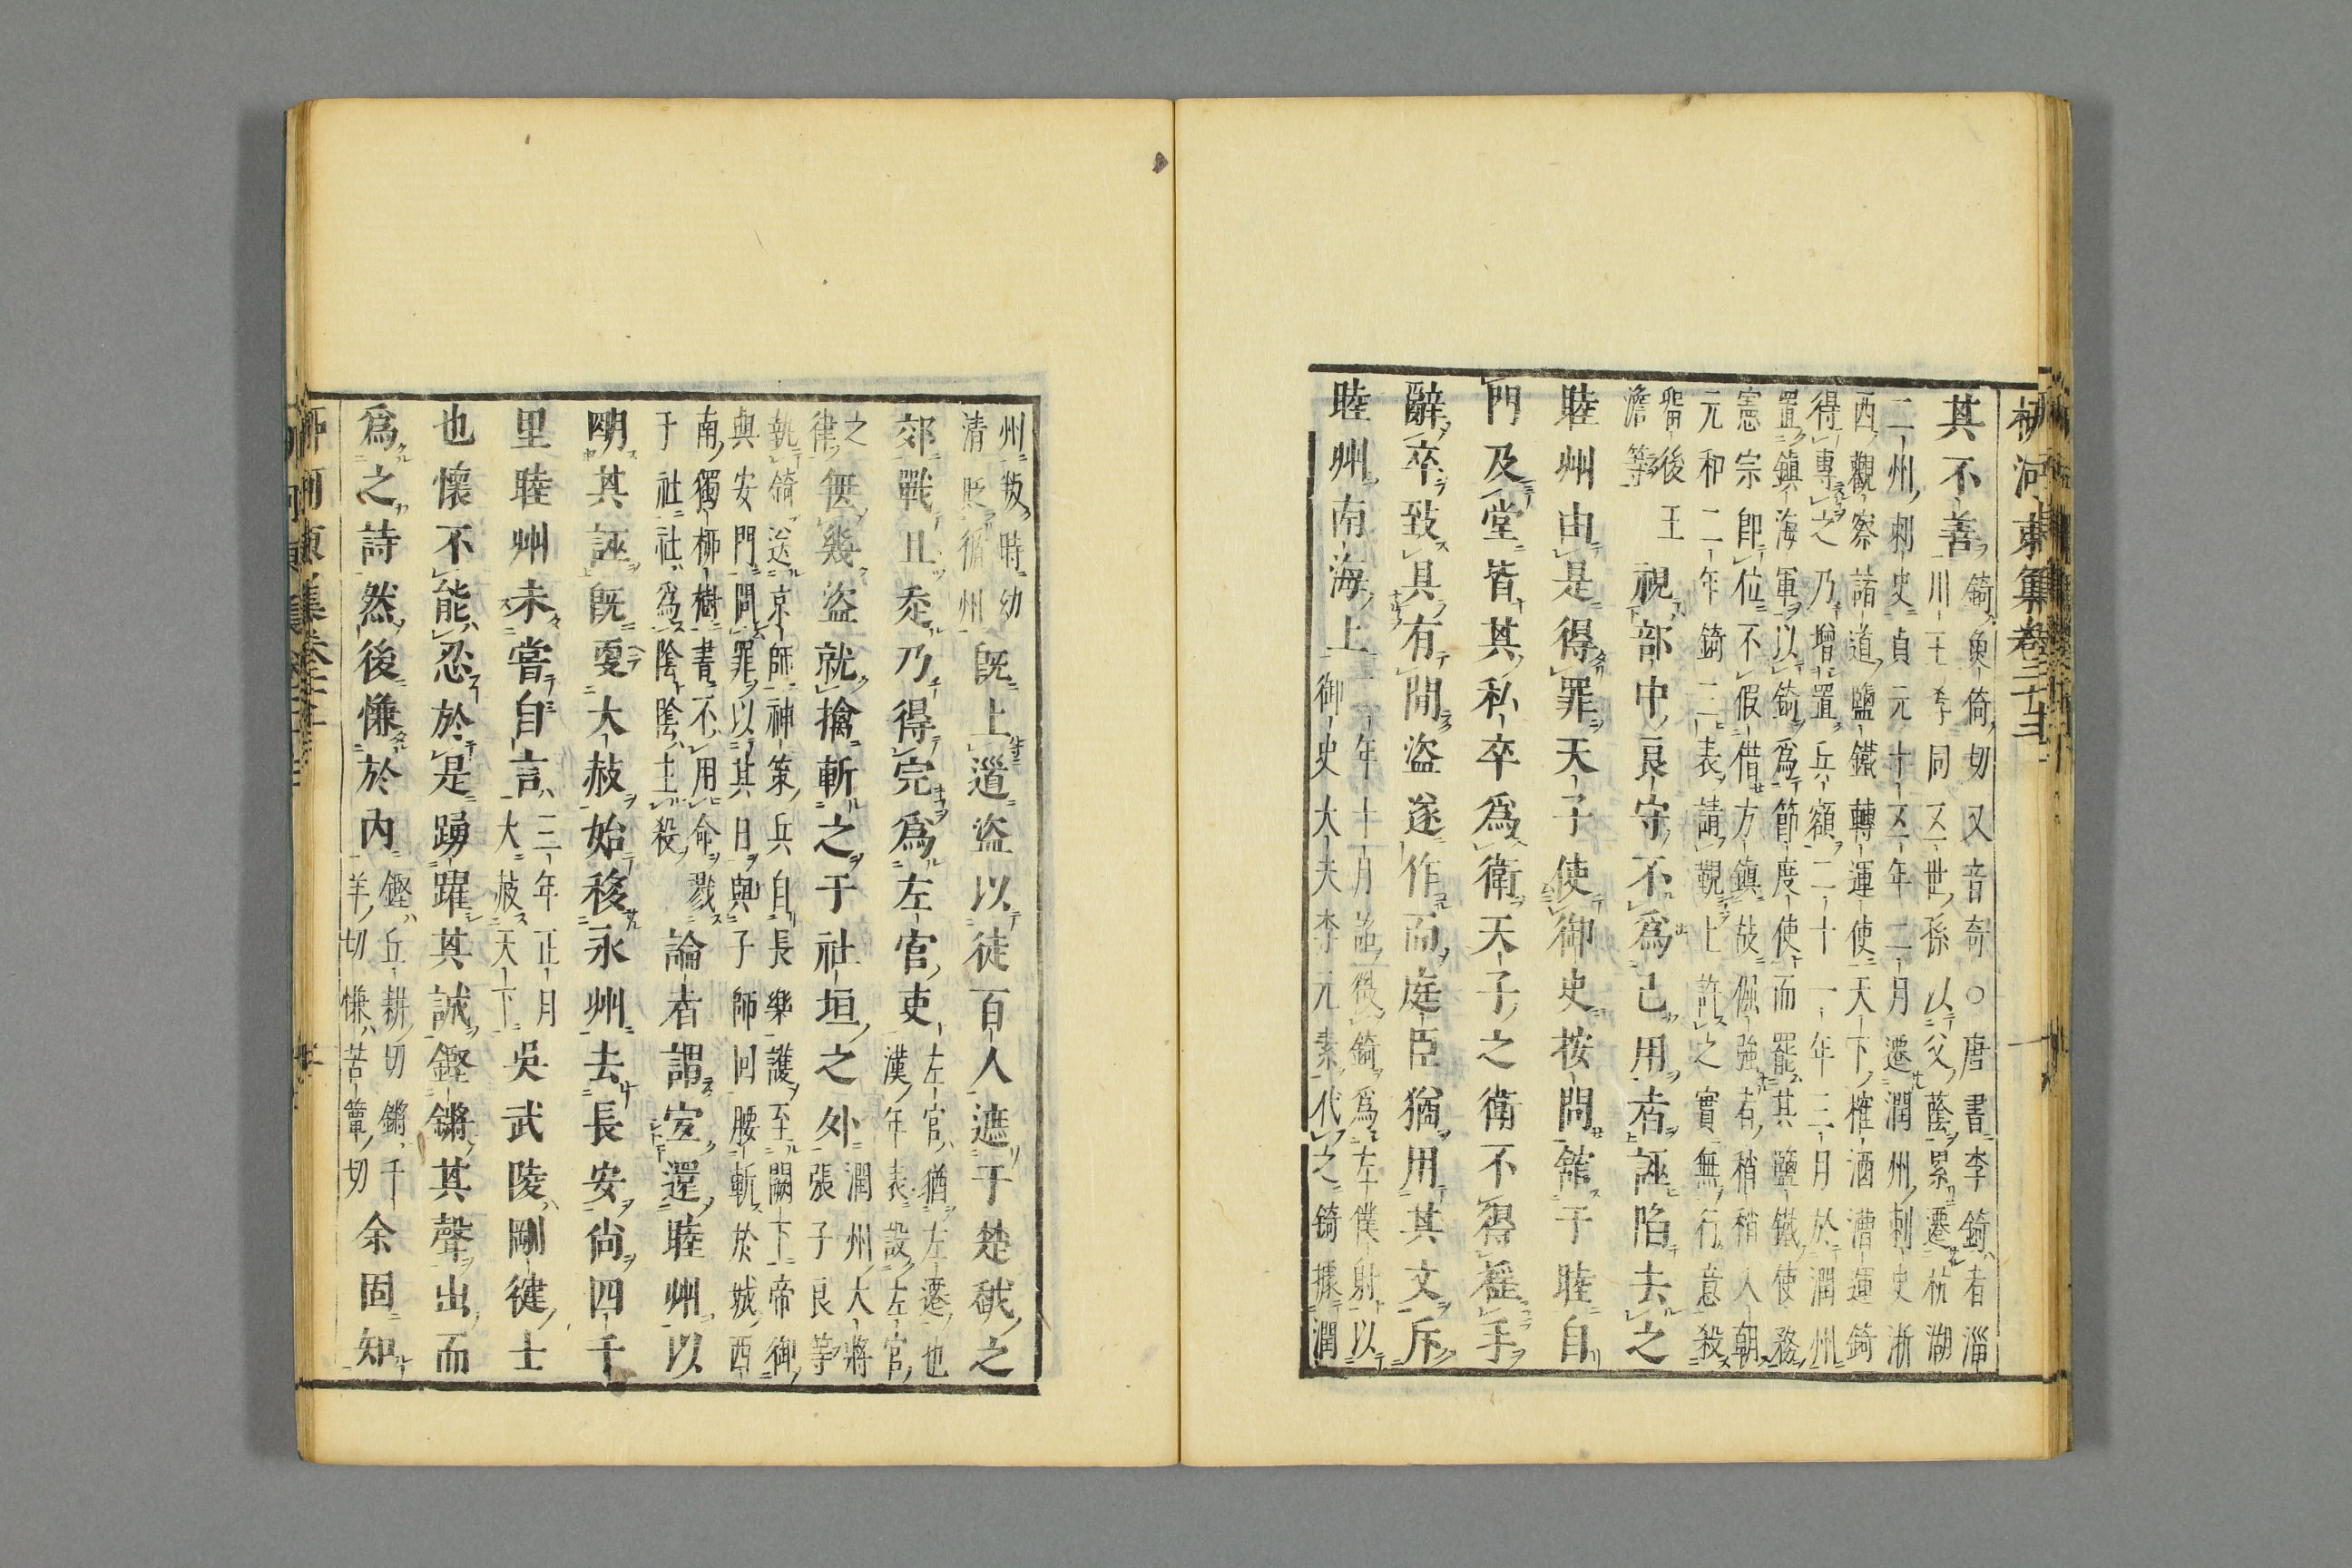 柳河東集卷二十三
其不善錡魚倚切又音奇○唐書李錡者淄
川王李同五世孫以父蔭累遷杭湖
二州刺史貞元十五年二月遷潤州刺史浙
西觀察諸道鹽鐵轉運使天下榷酒漕運錡
得專之乃增置兵額二十一年三月於潤州
置鎮海軍以錡爲節度使而罷其鹽鐵使務
憲宗卽位不假借方鎮故倔強者稍稍入朝
元和二年錡三表請覲上許之實無行意殺
留後王
澹等視部中良守不爲己用者誣陷去之
睦州由是得罪天子使御史按問舘于睦自
門及堂皆其私卒爲衛天子之衛不得搖手
辭卒致具有間盜遂作而庭臣猶用其文斥
睦州南海上二年十月詔徵錡爲左僕射以
御史大夫李元素代之錡據潤
州叛時幼
清貶循州旣上道盜以徒百人遮于楚越之
郊戰且走乃得完爲左官吏左官猶左遷也
漢年表設左官
之
律無幾盜就擒斬之于社垣之外潤州大將
張子良等
執錡送京師神策兵自長樂護至闕下帝御
興安門問罪以其日與子師回腰斬於城西
南獨柳樹書不用命戮
于社社爲陰陰主殺論者謂宜還睦州以
明其誣旣更大赦始移永州去長安尚四千
里睦州未嘗自言三年正月
大赦天下吳武陵剛健士
也懷不能忍於是踴躍其誠鏗鏘其聲出而
爲之詩然後慊於內鏗丘耕切鏘千
羊切慊苦簟切余固知